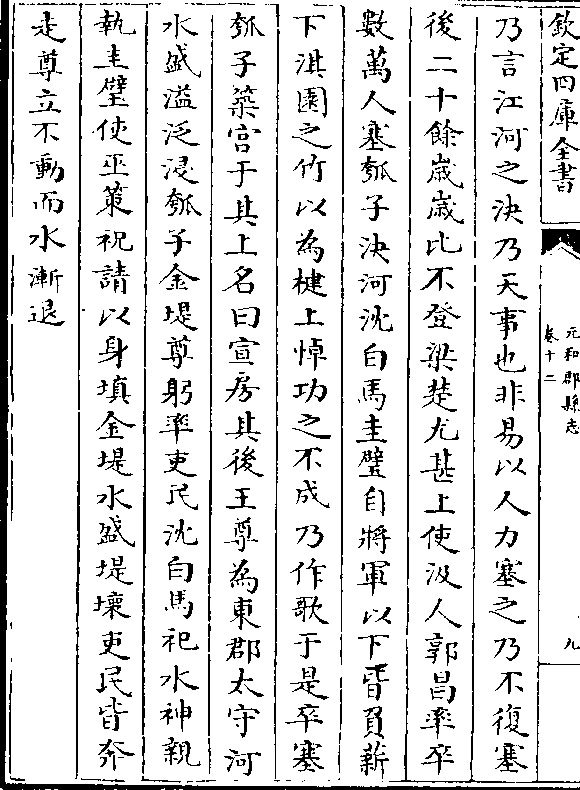 欽定四庫全書
元和郡縣志
卷十二
九
乃言江河之決乃天事也非易以人力塞之乃不復塞
後二十餘歲歲比不登梁楚尤甚上使汲人郭昌率卒
數萬人塞瓠子決河沈白馬圭璧自將軍以下皆負薪
下淇園之竹以為楗上悼功之不成乃作歌于是卒塞
瓠子築宫于其上名曰宣房其後王尊為東郡太守河
水盛溢泛浸瓠子金堤尊躬率吏民沈白馬祀水神親
執圭璧使巫策祝請以身填金堤水盛堤壞吏民皆奔
走尊立不動而水漸退